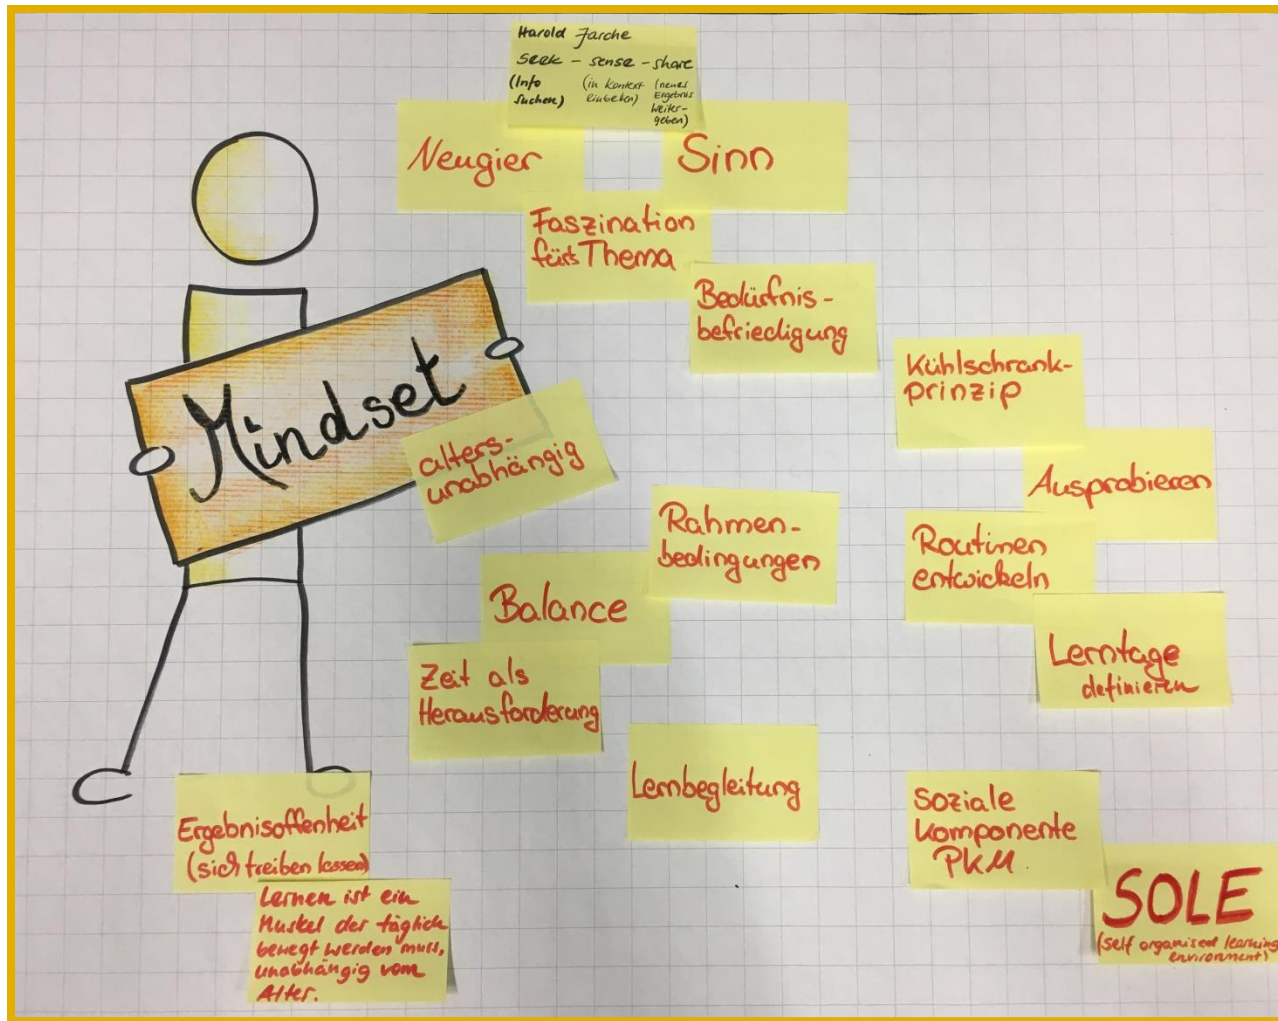 Harold Jarche
seek - sense - share
(Info
suchen)
(in Kontext
einbetten)
(neues
Ergebnis
weiter-
geben)
Neugier
Sinn
Faszination
fürs Thema
Bedürfnis-
befriedigung
Mindset
alters-
unabhängig
Kühlschrank-
prinzip
Ausprobieren
Rahmen-
bedingungen
Routinen
entwickeln
Balance
Lerntage
definieren
Zeit als
Herausforderung
Lernbegleitung
Soziale
Komponente
PKM
SOLE
(self organised learning
environment)
Ergebnisoffenheit
(sich treiben lassen)
Lernen ist ein
Muskel der täglich
bewegt werden muss,
unabhängig vom
Alter.